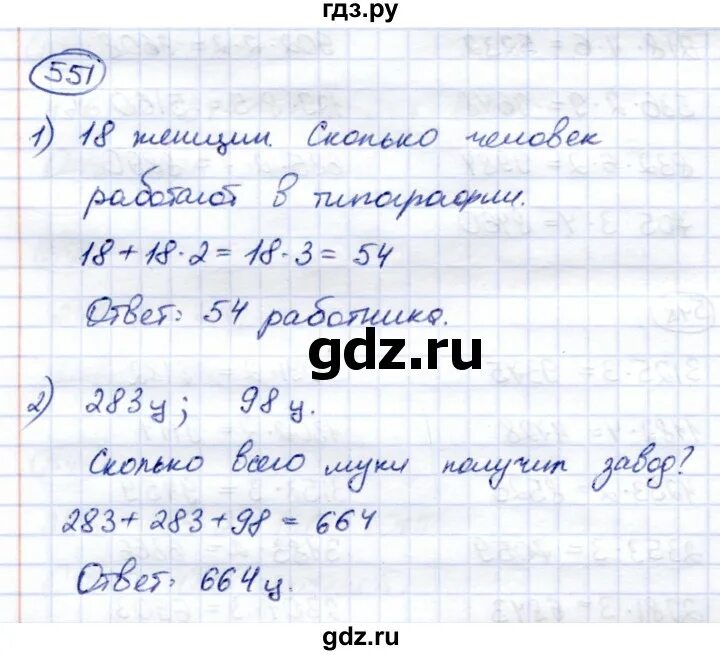 гдз.ру
551
1) 18 женщин. Сколько человек
работают в типографии.
18 + 18 · 2 = 18 · 3 = 54
Ответ: 54 работника.
gdz.ru
2) 283 ц; 98 ц.
Сколько всего муки получил завод?
283 + 283 + 98 = 664
Ответ: 664 ц.
gdz.ru